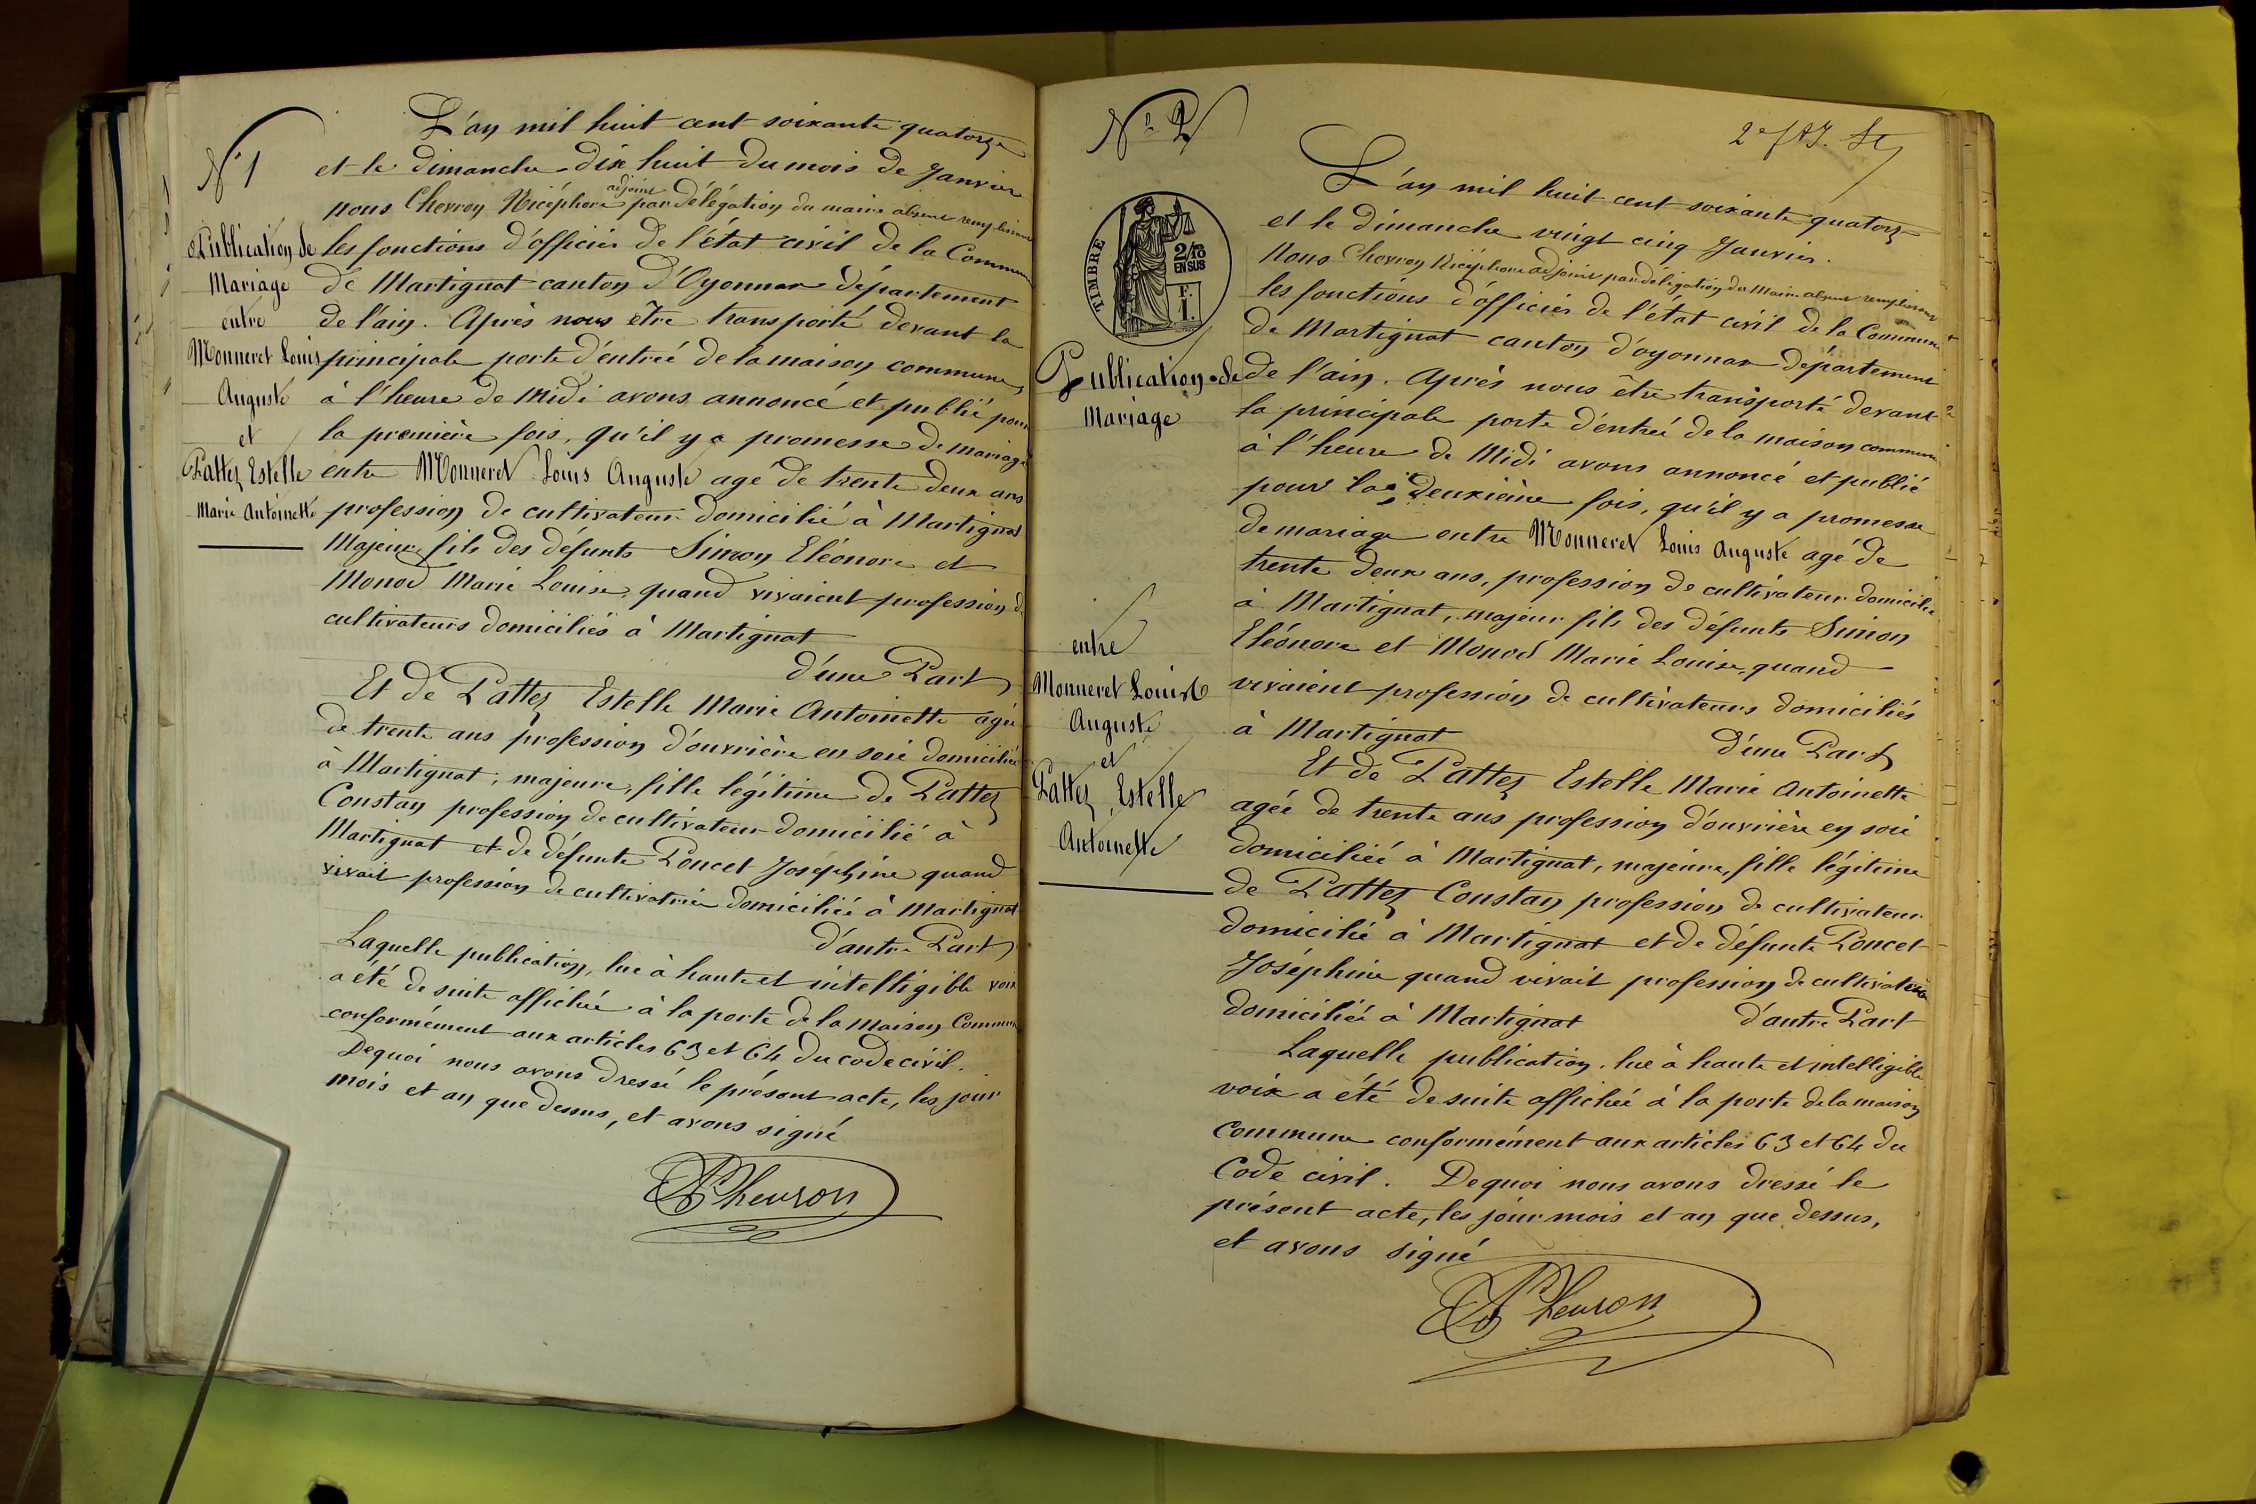 N° 1
Publication de
Mariage
entre
Monneret Louis
Auguste
et
Pattez Estelle
Marie Antoinette
L'an mil huit cent soixante quatorze
et le dimanche dix huit du mois de Janvier
nous Chevron Nicéphore adjoint par délégation du maire absent remplissant
les fonctions d'officier de l'état civil de la Commune
de Martignat canton d'Oyonnax département
de l'ain. Après nous être transporté devant la
principale porte d'entrée de la maison commune,
à l'heure de Midi avons annoncé et publié pour
la première fois, qu'il y a promesse de mariage
entre Monneret Louis Auguste agé de trente deux ans
profession de cultivateur domicilié à Martignat
Majeur, fils des défunts Simon Eléonore et
Monod Marie Louise, quand vivaient profession de
cultivateurs domiciliés à Martignat
d'une Part
Et de Pattez Estelle Marie Antoinette agée
de trente ans profession d'ouvrière en soie domiciliée
à Martignat, majeure, fille légitime de Pattez
Constan profession de cultivateur domicilié à
Martignat et de défunte Poncet Joséphine quand
vivait profession de cultivatrice domiciliée à Martignat
d'autre Part
Laquelle publication, lue à haute et intelligible voix
a été de suite affichée à la porte de la Maison Commune
conformément aux articles 63 et 64 du code civil.
Dequoi nous avons dressé le présent acte, les jour
mois et an que dessus, et avons signé
Chevron
N° 2
TIMBRE
2/10
EN SUS
F.
1.
Publication de
Mariage
entre
Monneret Louis
Auguste
et
Pattez Estelle
Antoinette
L'an mil huit cent soixante quatorze
et le dimanche vingt cinq Janvier.
Nous Chevron Nicéphore adjoint par délégation du Maire absent remplissant
les fonctions d'officier de l'état civil de la Commune
de Martignat canton d'oyonnax département
de l'ain. Après nous être transporté devant
la principale porte d'entrée de la maison commune
à l'heure de Midi avons annoncé et publié
pour la deuxième fois, qu'il y a promesse
de mariage entre Monneret Louis Auguste agé de
trente deux ans, profession de cultivateur domicilié
à Martignat, majeur fils des défunts Simon
Eléonore et Monod Marie Louise, quand
vivaient profession de cultivateurs domiciliés
à Martignat d'une Part
Et de Pattez Estelle Marie Antoinette
agée de trente ans profession d'ouvrière en soie
domiciliée à Martignat, majeure, fille légitime
de Pattez Constan profession de cultivateur
domicilié à Martignat et de défunte Poncet
Joséphine quand vivait profession de cultivatrice
domiciliée à Martignat d'autre Part
Laquelle publication, lue à haute et intelligible
voix a été de suite affichée à la porte de la maison
commune conformément aux articles 63 et 64 du
Code civil. Dequoi nous avons dressé le
présent acte, les jour mois et an que dessus,
et avons signé
Chevron